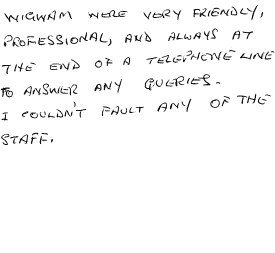 WIGWAM WERE VERY FRIENDLY,
PROFESSIONAL, AND ALWAYS AT
THE END OF A TELEPHONE LINE
TO ANSWER ANY QUERIES.
I COULDN'T FAULT ANY OF THE
STAFF.